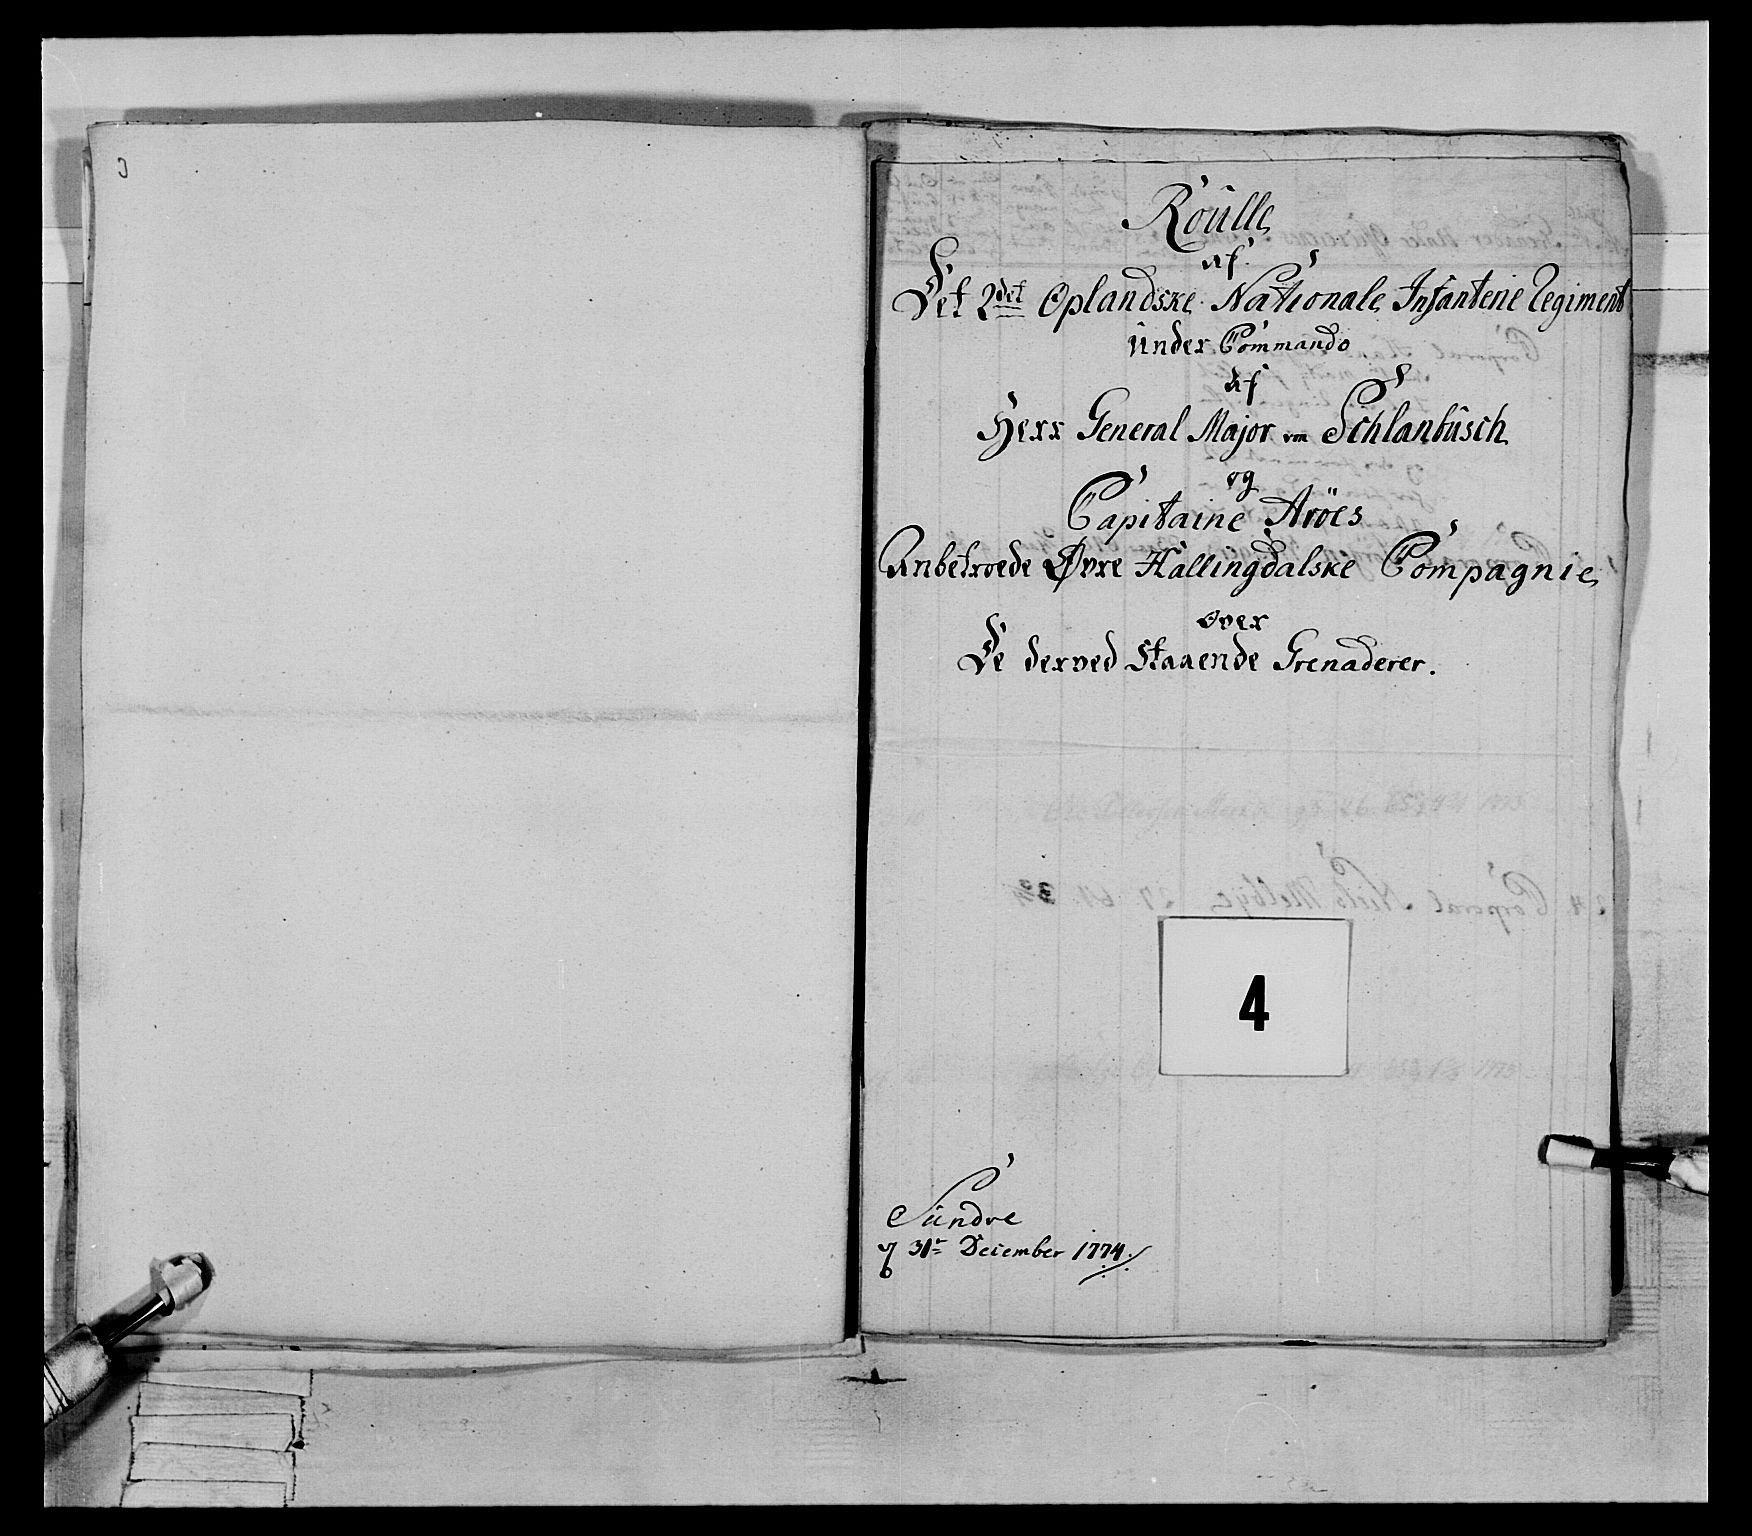 Roulle
af
Det 2det Oplandske Nationale Infanterie Regiment
under Commando
af
Herr General Major von Schlanbusch
og
Capitaine Aröes
Anbetroede Øvre Hallingdalske Compagnie
over
De derved Staaende Grenaderer.
4
Sundre
31te December 1774